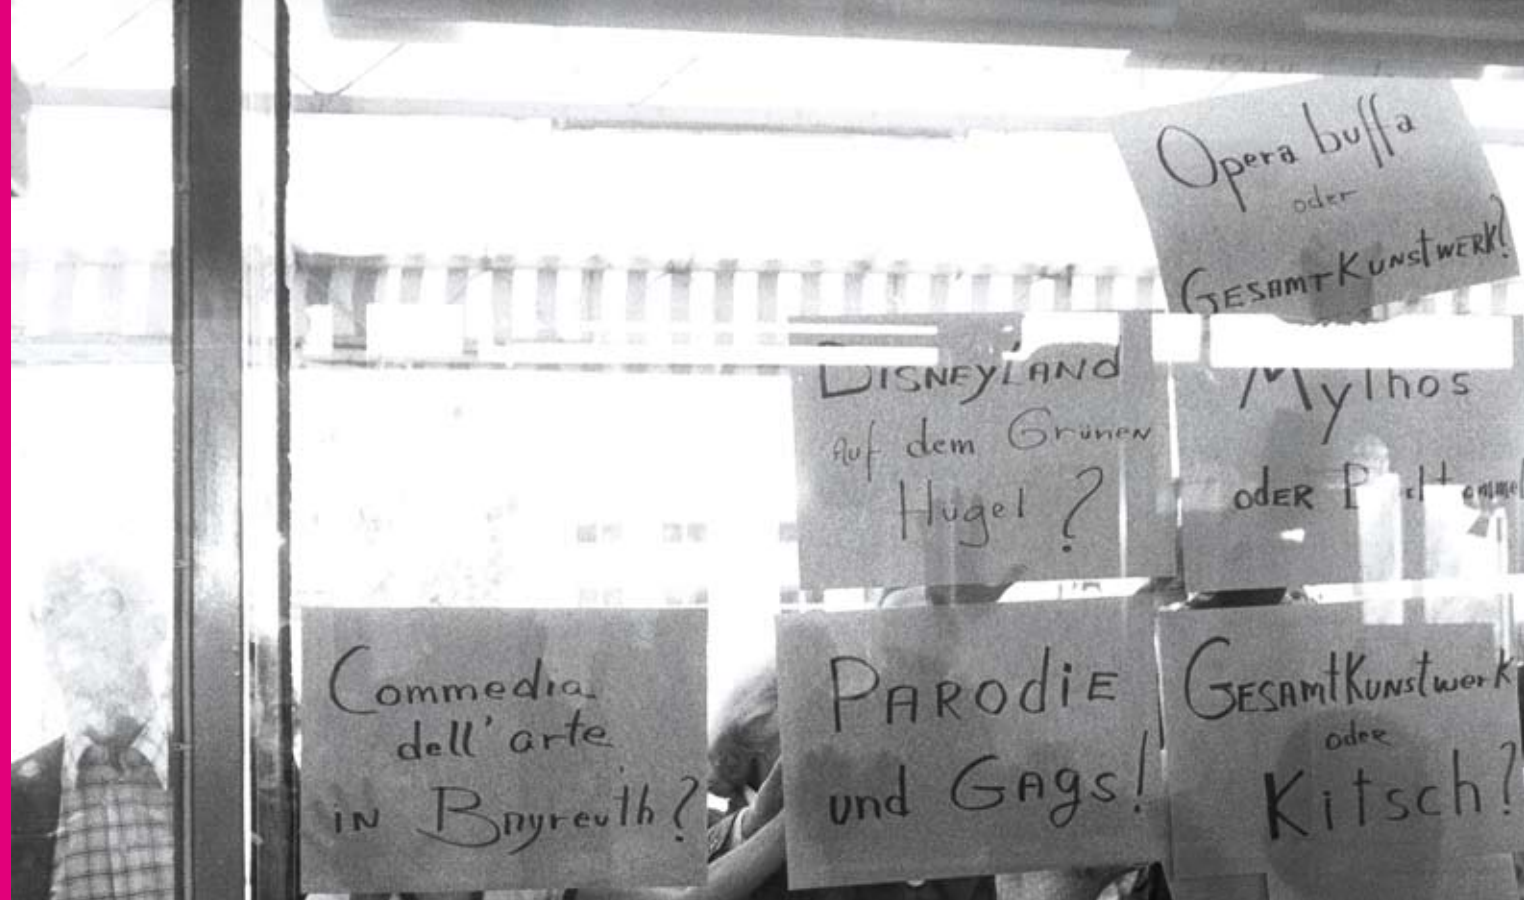 Opera buffa
oder
GESAMTKUNSTWERK?
DISNEYLAND
Auf dem Grünen
Hügel?
Mythos
ODER
Commedia
dell'arte
IN Bayreuth?
PARODIE
und GAgs!
GESAMTKUNSTwerk
oder
Kitsch?